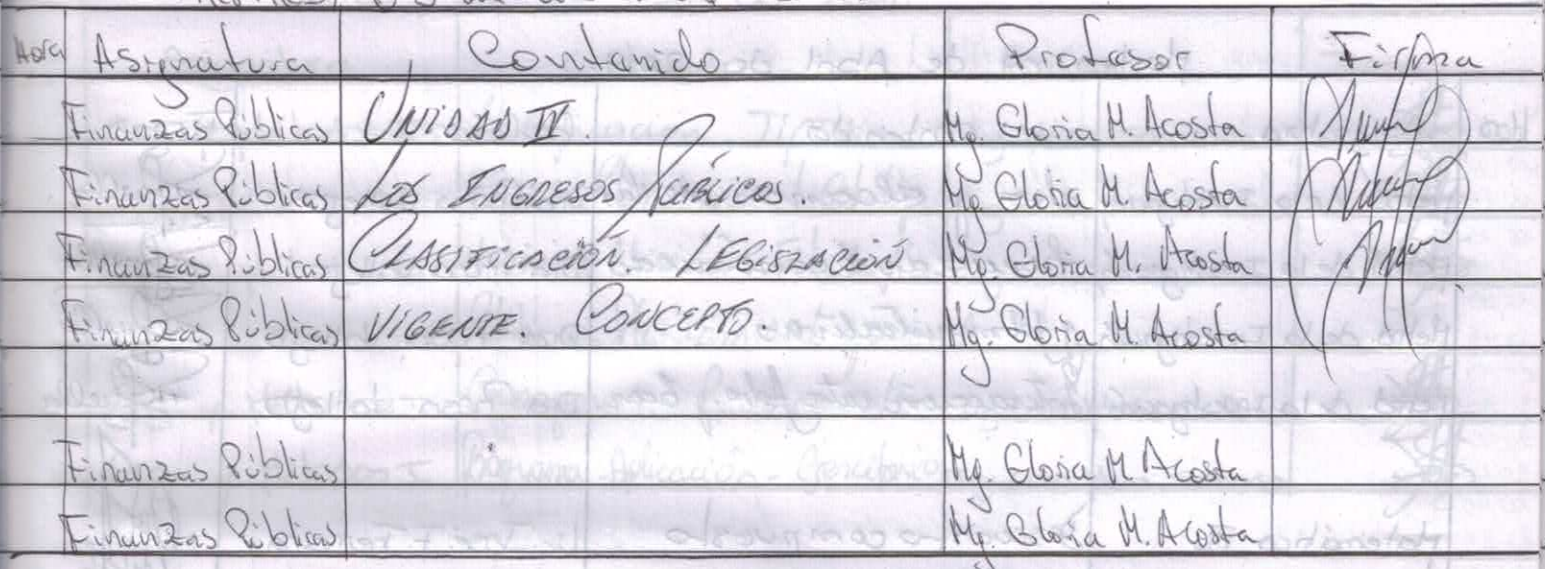 Hora Asignatura Contenido Profesor Firma
Finanzas Públicas UNIDAD II Mg. Gloria M. Acosta
Finanzas Públicas LOS INGRESOS PÚBLICOS. Mg. Gloria M. Acosta
Finanzas Públicas CLASIFICACIÓN. LEGISLACIÓN Mg. Gloria M. Acosta
Finanzas Públicas VIGENTE. CONCEPTO. Mg. Gloria M. Acosta
Finanzas Públicas Mg. Gloria M. Acosta
Finanzas Públicas Mg. Gloria M. Acosta